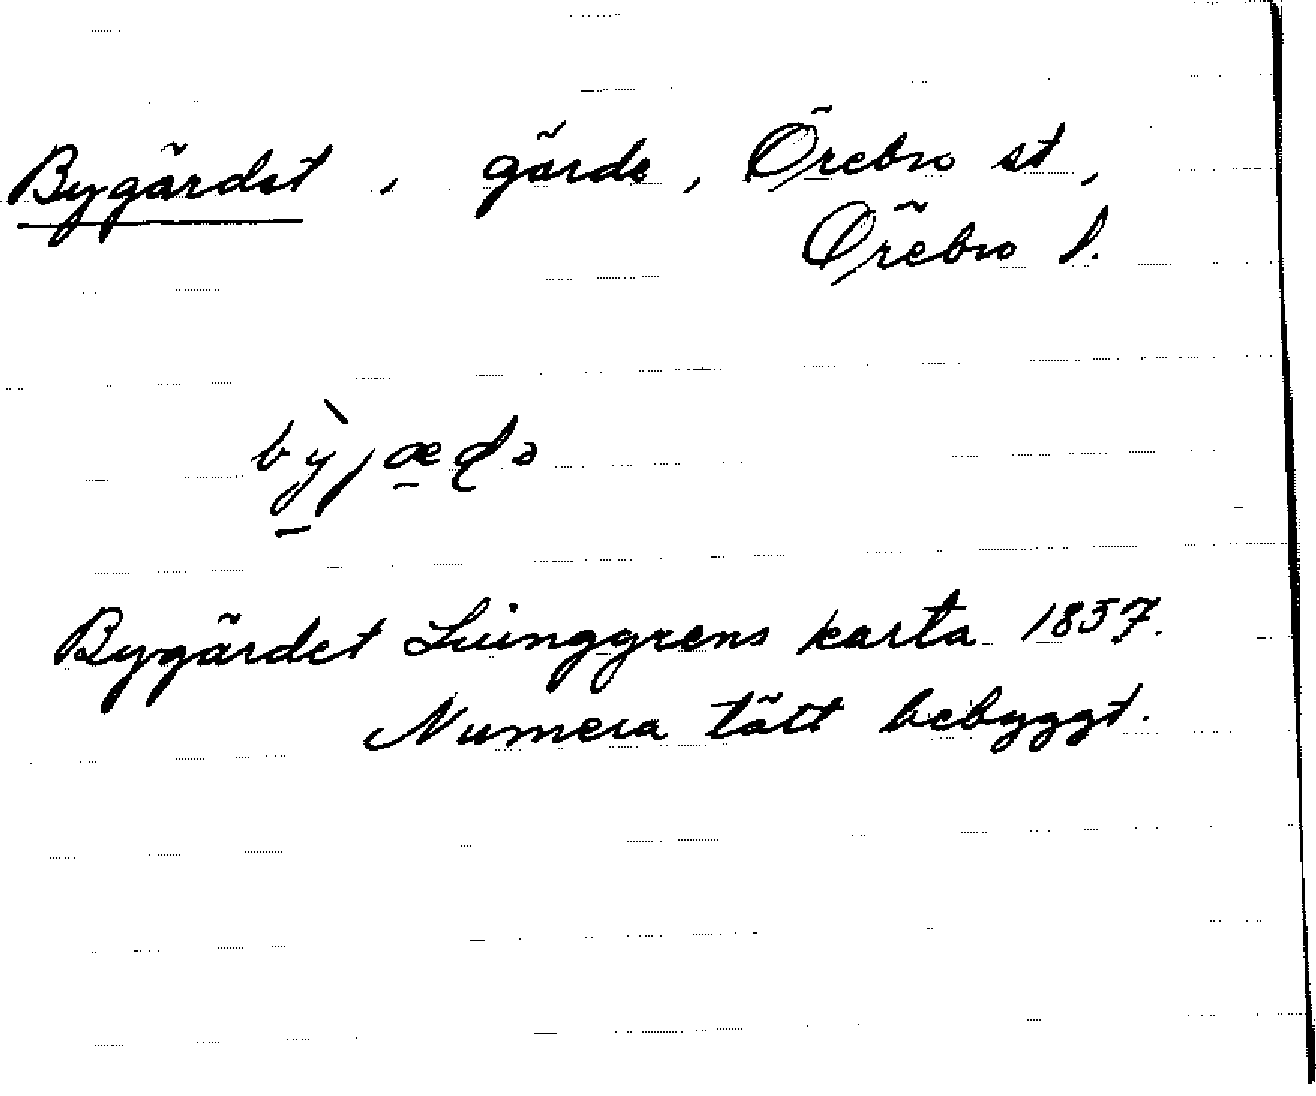 Bygärdet, gärde, Örebro st,
Örebro l.
Bygärdet Luinggrens karta 1857.
Numera tätt bebyggt.